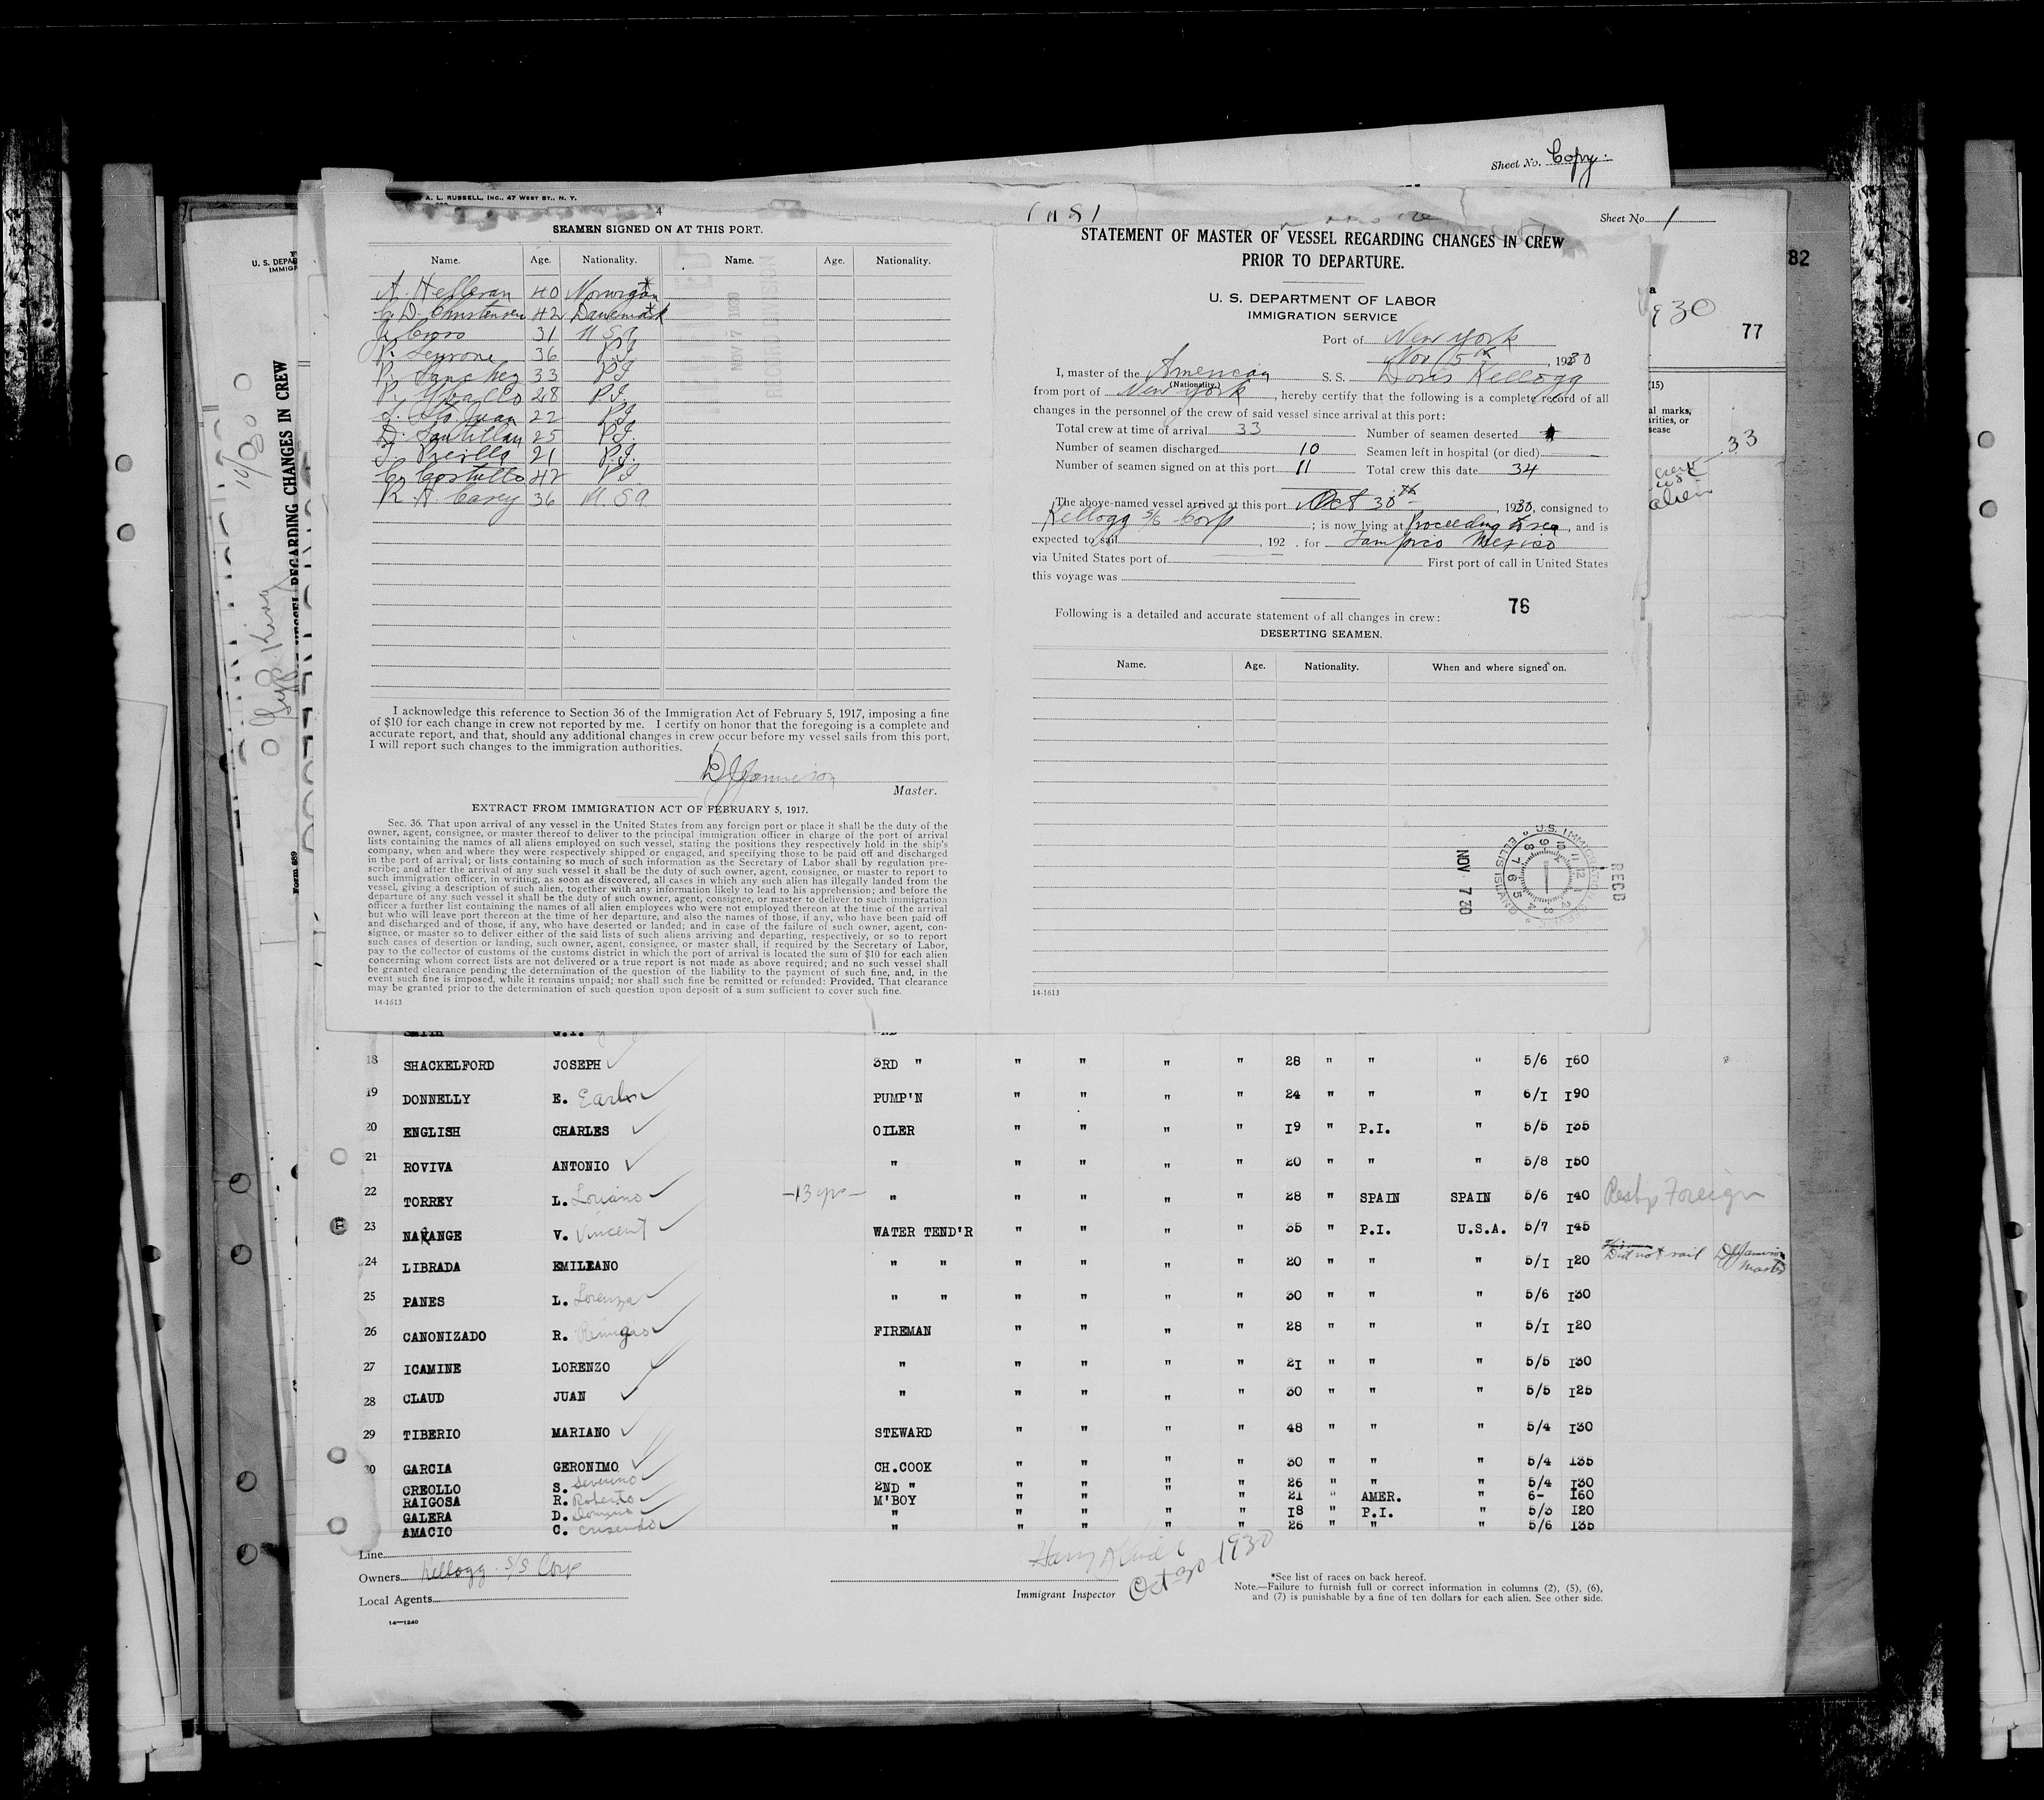 Sheet No. Copy.
A. L. RUSSELL, INC., 47 WEST ST., N. Y.
4
SEAMEN SIGNED ON AT THIS PORT.
Name. Age. Nationality. Name. Age. Nationality.
A. Helleran 40 Norwigan
C. D. Christensen 42 Danemark
31 U S a
36 P.I.
P. Sanchez 33 P.I.
28 P.I.
L. Sto. Juan 22 P.I.
D. Santillan 25 P.I.
21 P.I.
C. Costullo 42 P I
R. A. Carey 36 U.S.a.
NOV 7 1930
RECORD DIVISION
I acknowledge this reference to Section 36 of the Immigration Act of February 5, 1917, imposing a fine
of $10 for each change in crew not reported by me. I certify on honor that the foregoing is a complete and
accurate report, and that, should any additional changes in crew occur before my vessel sails from this port,
I will report such changes to the immigration authorities.
D J Jamieson
Master.
EXTRACT FROM IMMIGRATION ACT OF FEBRUARY 5, 1917.
Sec. 36. That upon arrival of any vessel in the United States from any foreign port or place it shall be the duty of the
owner, agent, consignee, or master thereof to deliver to the principal immigration officer in charge of the port of arrival
lists containing the names of all aliens employed on such vessel, stating the positions they respectively hold in the ship's
company, when and where they were respectively shipped or engaged, and specifying those to be paid off and discharged
in the port of arrival; or lists containing so much of such information as the Secretary of Labor shall by regulation pre-
scribe; and after the arrival of any such vessel it shall be the duty of such owner, agent, consignee, or master to report to
such immigration officer, in writing, as soon as discovered, all cases in which any such alien has illegally landed from the
vessel, giving a description of such alien, together with any information likely to lead to his apprehension; and before the
departure of any such vessel it shall be the duty of such owner, agent, consignee, or master to deliver to such immigration
officer a further list containing the names of all alien employees who were not employed thereon at the time of the arrival
but who will leave port thereon at the time of her departure, and also the names of those, if any, who have been paid off
and discharged and of those, if any, who have deserted or landed; and in case of the failure of such owner, agent, con-
signee, or master so to deliver either of the said lists of such aliens arriving and departing, respectively, or so to report
such cases of desertion or landing, such owner, agent, consignee, or master shall, if required by the Secretary of Labor,
pay to the collector of customs of the customs district in which the port of arrival is located the sum of $10 for each alien
concerning whom correct lists are not delivered or a true report is not made as above required; and no such vessel shall
be granted clearance pending the determination of the question of the liability to the payment of such fine, and, in the
event such fine is imposed, while it remains unpaid; nor shall such fine be remitted or refunded: Provided, That clearance
may be granted prior to the determination of such question upon deposit of a sum sufficient to cover such fine.
14-1613
Sheet No. 1
STATEMENT OF MASTER OF VESSEL REGARDING CHANGES IN CREW
PRIOR TO DEPARTURE.
U. S. DEPARTMENT OF LABOR
IMMIGRATION SERVICE
Port of New York
Nov 5th, 1930
I, master of the American S. S. Doris Kellogg
(Nationality.)
from port of New York, hereby certify that the following is a complete record of all
changes in the personnel of the crew of said vessel since arrival at this port:
Total crew at time of arrival 33 Number of seamen deserted
Number of seamen discharged 10 Seamen left in hospital (or died)
Number of seamen signed on at this port 11 Total crew this date 34
The above-named vessel arrived at this port Oct 30th, 1930, consigned to
Kellogg S/S Corp; is now lying at Proceeding to sea, and is
expected to sail, 192 . for Tampico Mexico
via United States port of First port of call in United States
this voyage was
76
Following is a detailed and accurate statement of all changes in crew:
DESERTING SEAMEN.
Name. Age. Nationality. When and where signed on.
REC'D
U.S. IMMIGRATION SERVICE ELLIS ISLAND
NOV 7 30
14-1613
82
930
77
(15)
33
crew
us
alien
U. S. DEPAR
IMMIGR
REGARDING CHANGES IN CREW
Form 689
SMITH G.I. 2ND
18 SHACKELFORD JOSEPH 3RD " " " " " 28 " " " 5/6 I60
19 DONNELLY E. Earl PUMP'N " " " " 24 " " " 6/I I90
20 ENGLISH CHARLES OILER " " " " I9 " P.I. " 5/5 I35
21 ROVIVA ANTONIO " " " " " 20 " " " 5/8 I50
22 TORREY L. Loriano -13 yrs- " " " " " 28 " SPAIN SPAIN 5/6 I40 Foreign
23 NAVANGE V. Vincent WATER TEND'R " " " " 35 " P.I. U.S.A. 5/7 I45
24 LIBRADA EMILEANO " " " " " " 20 " " " 5/I I20 Did not sail DJJamieson Master
25 PANES L. Lorenza " " " " " " 30 " " " 5/6 I30
26 CANONIZADO R. Remigao FIREMAN " " " " 28 " " " 5/I I20
27 ICAMINE LORENZO " " " " " 2I " " " 5/5 I30
28 CLAUD JUAN " " " " " 30 " " " 5/5 I25
29 TIBERIO MARIANO STEWARD " " " " 48 " " " 5/4 I30
30 GARCIA GERONIMO CH.COOK " " " " 30 " " " 5/4 I35
CREOLLO S. Severino 2ND " " " " " 26 " " " 5/4 I30
RAIGOSA R. Roberto M'BOY " " " " 21 " AMER. " 6- I60
GALERA D. Domino " " " " " I8 " P.I. " 5/3 I20
AMACIO C. " " " " " 26 " " " 5/6 I35
Line
Owners Kellogg S/S Corp
Local Agents
14—1240
Oct 30 1930
Immigrant Inspector
*See list of races on back hereof.
Note.—Failure to furnish full or correct information in columns (2), (5), (6),
and (7) is punishable by a fine of ten dollars for each alien. See other side.